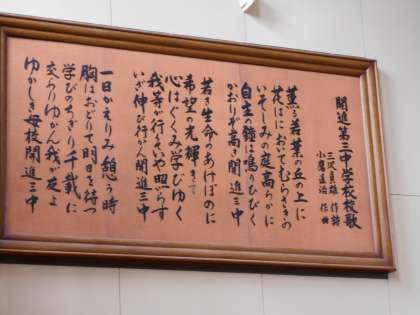 開進第三中学校校歌
三沢貞雄 作詩
小鷹直治 作曲
薫る若葉の丘の上に
花はにおいてむらさきの
いそしみの庭高らかに
自主の鐘は鳴りひびく
かおりぞ高き開進三中
若き生命のあけぼのに
希望の光輝きて
心はぐくみ学びゆく
我等が行くてや照らす
いざ伸び行かん開進三中
一日かえりみ憩う時
胸はおどりて明日を待つ
学びのちぎり千載に
交りゆかん我が友よ
ゆかしき母校開進三中